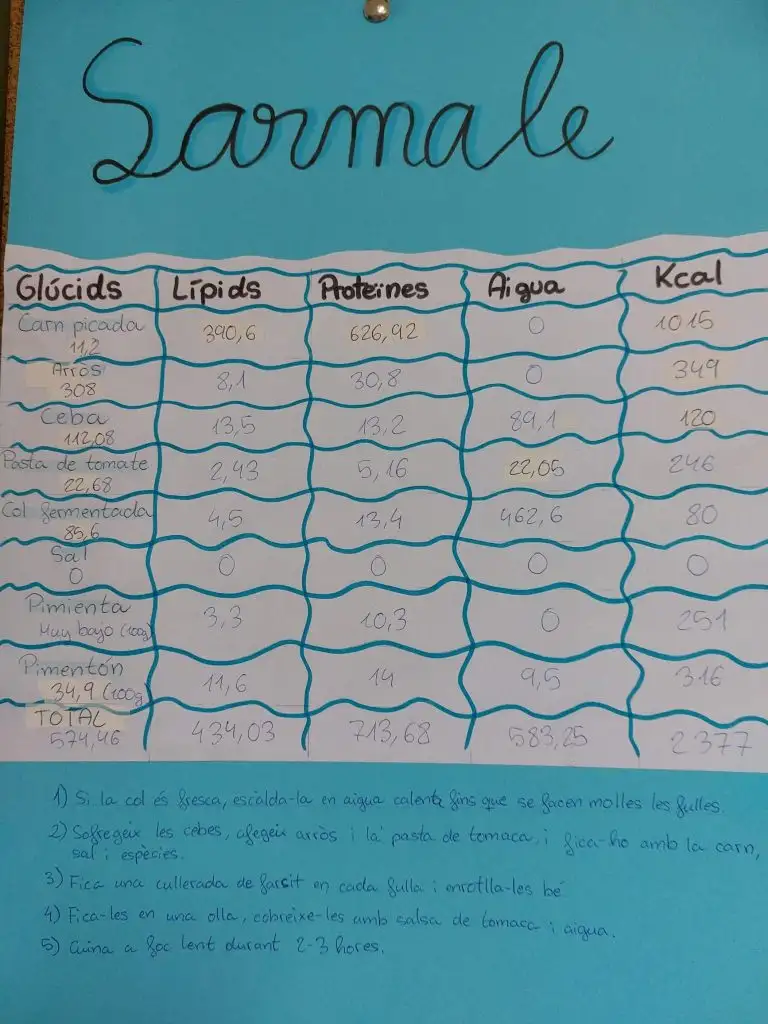 Sarmale
Glúcids Lípids Proteïnes Aigua Kcal
Carn picada
11,2 390,6 626,92 0 1015
Arròs
308 8,1 30,8 0 349
Ceba
112,08 13,5 13,2 89,1 120
Pasta de tomate
22,68 2,43 5,16 22,05 246
Col fermentada
85,6 4,5 13,4 462,6 80
Sal
0 0 0 0 0
Pimienta
Muy bajo (100g) 3,3 10,3 0 251
Pimentón
34,9 (100g) 11,6 14 9,5 316
TOTAL
574,46 434,03 713,68 583,25 2377
1) Si la col és fresca, escalda-la en aigua calenta fins que se facen molles les fulles.
2) Sofregeix les cebes, afegeix arròs i la pasta de tomaca, i fica-ho amb la carn,
sal i espècies.
3) Fica una cullerada de farcit en cada fulla i enrotlla-les bé
4) Fica-les en una olla, cobreixe-les amb salsa de tomaca i aigua.
5) Cuina a foc lent durant 2-3 hores.